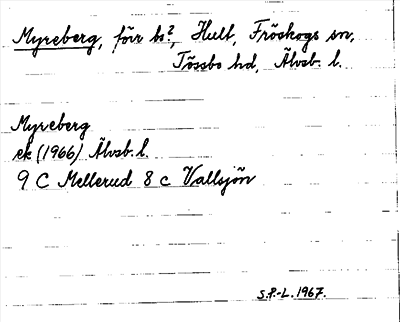 Myreberg, förr ho?, Hult, Fröskogs sn,
Tössbo hd, Älvsb. l.
Myreberg
ek (1966) Älvsb. l.
9 C Mellerud 8 c Vallsjön
S.P.-L. 1967.